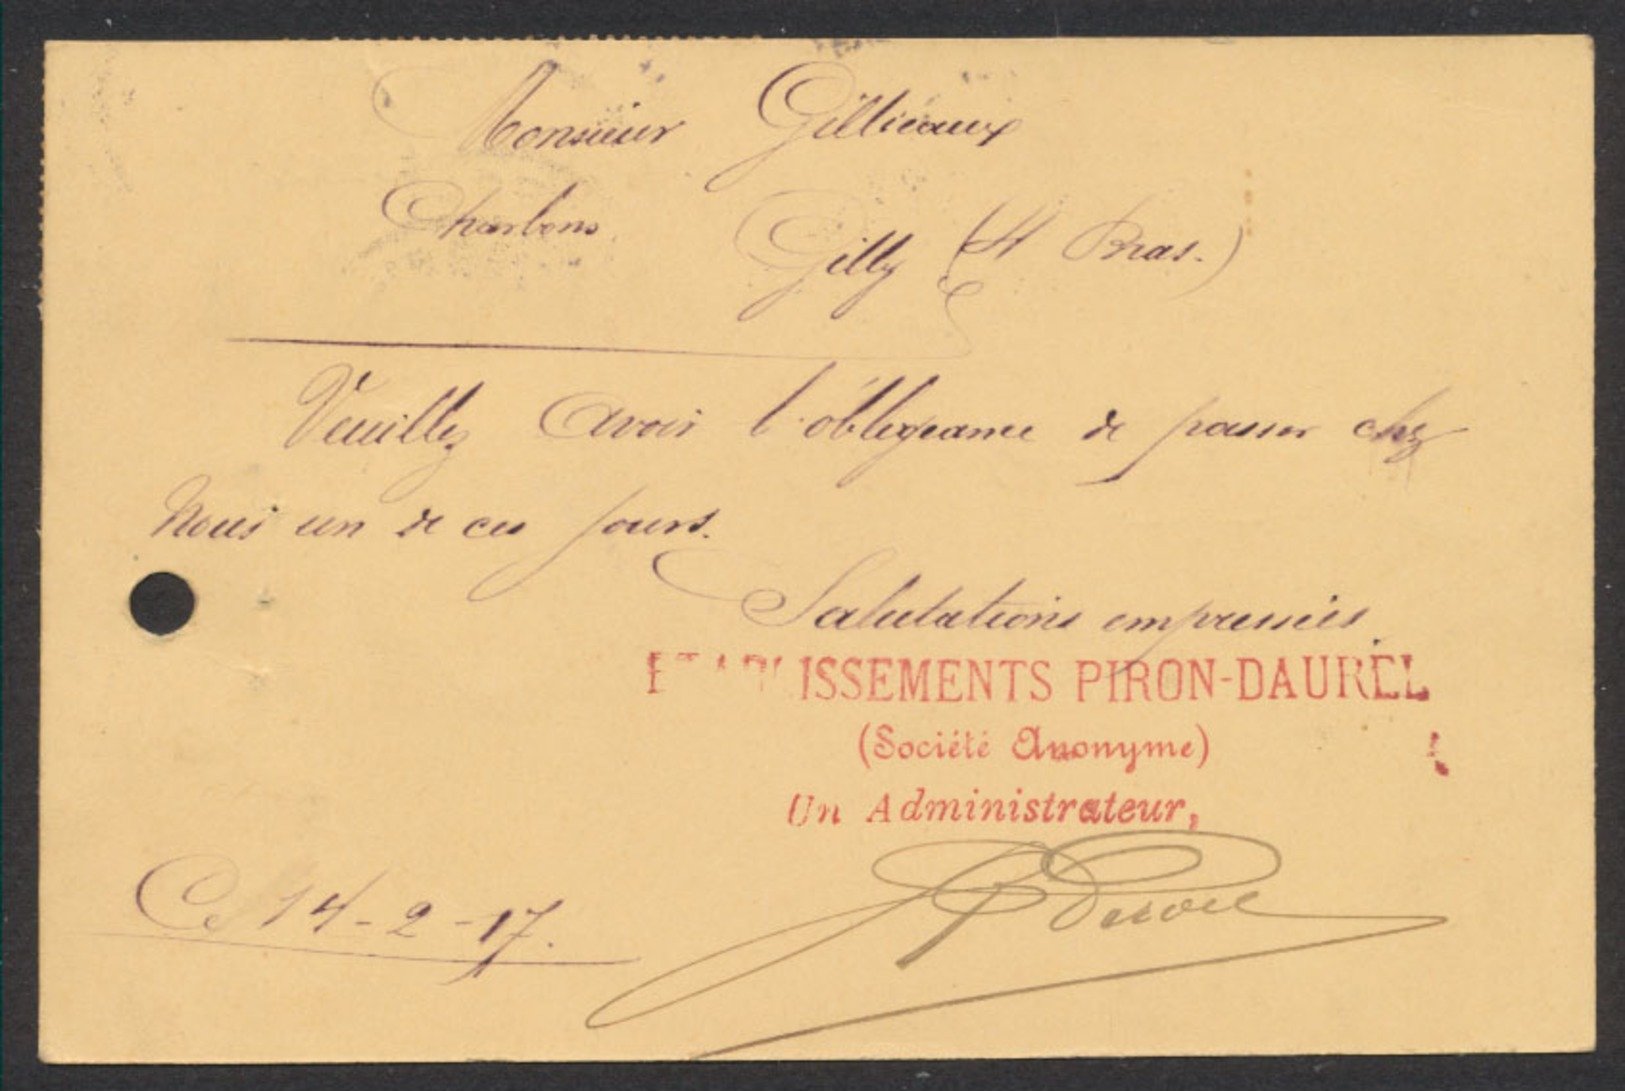 Monsieur Gillieaux
Charbons Gilly (4 Bras.)
Veuillez avoir l'obligeance de passer chez
nous un de ces jours.
Salutations empressées
ETABLISSEMENTS PIRON-DAUREL
(Société Anonyme)
Un Administrateur,
Ce 14-2-17.